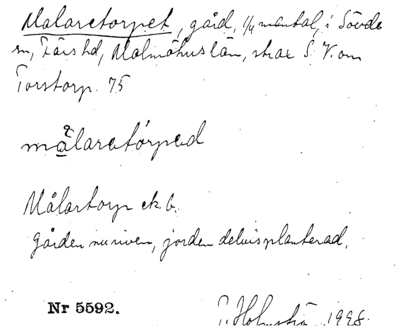 Malaretorpet, gård, 1/4 mantal, i Sövde
sn, Färs hd, Malmöhus län, strax S.V. om
Torstorp. 75
målaretórped
Målartorp ek b.
gården nu riven, jorden delvis planterad.
Nr 5592.
1998.